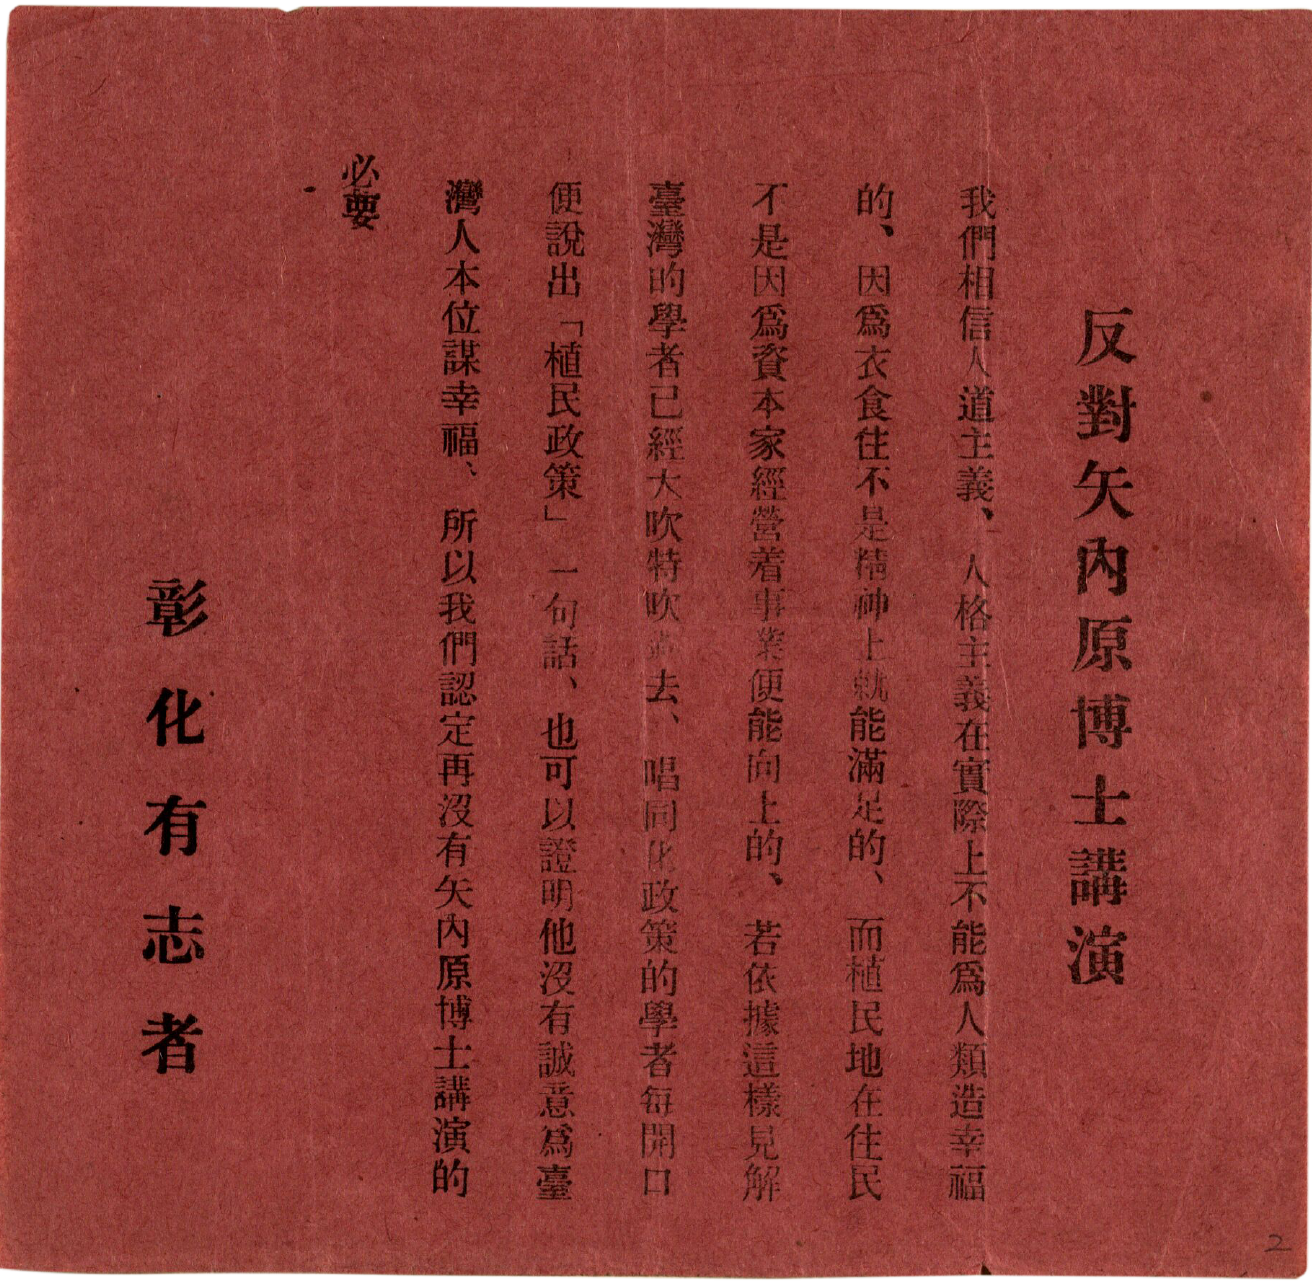 反對矢內原博士講演
我們相信人道主義、人格主義在實際上不能爲人類造幸福
的、因爲衣食住不是精神上就能滿足的、而植民地在住民
不是因爲資本家經營着事業便能向上的、若依據這樣見解
臺灣的學者已經大吹特吹過去、唱同化政策的學者每開口
便說出「植民政策」一句話、也可以證明他沒有誠意爲臺
灣人本位謀幸福、所以我們認定再沒有矢內原博士講演的
必要
彰化有志者
2